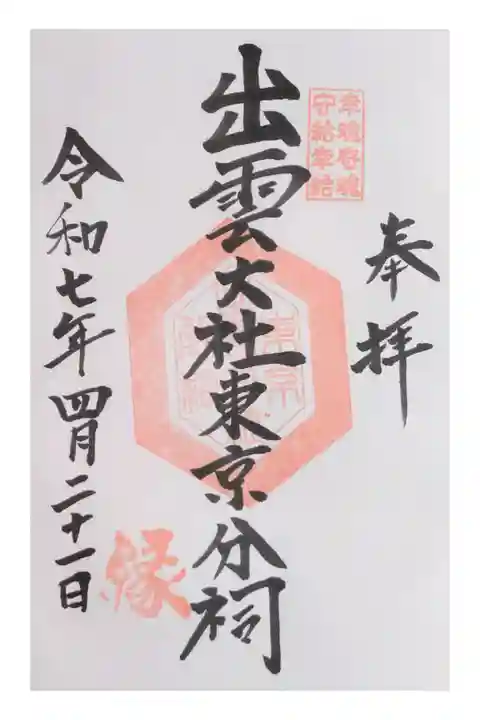 奉拝
幸魂奇魂
守給幸給
出雲大社東京分祠
縁
令和七年四月二十一日